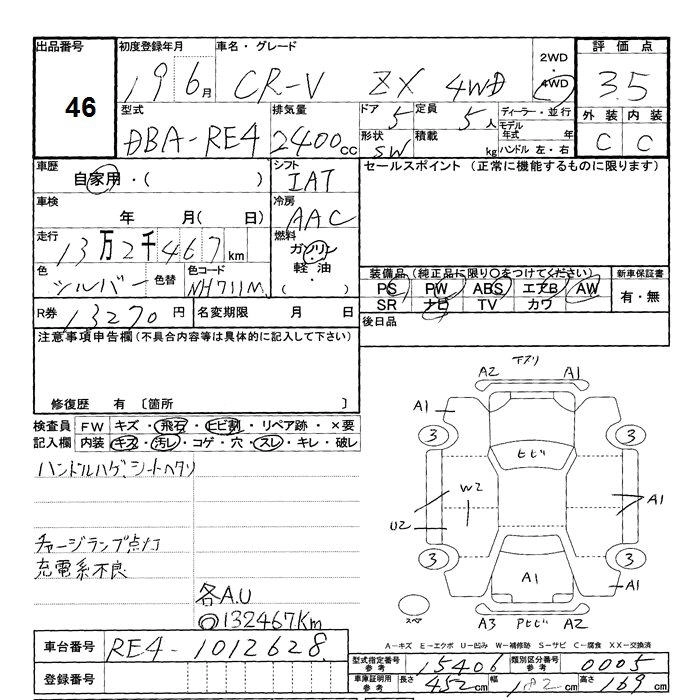 出品番号
46
初度登録年月
19 6月
車名・グレード
CR-V ZX 4WD
2WD
・
4WD
評価点
3.5
型式
DBA-RE4
排気量
2400cc
ドア 5
定員 5人
形状 SW
積載 kg
ディーラー・並行
モデル年式 年
ハンドル 左・右
外装 内装
C C
車歴
自家用・( )
シフト
IAT
セールスポイント (正常に機能するものに限ります)
車検
年 月( 日)
冷房
AAC
走行
13万2千467km
燃料
ガソリン
・
軽油
・
( )
色
シルバー
色替
色コード
NH711M
装備品(純正品に限り○をつけてください)
PS PW ABS エアB AW
SR ナビ TV カワ
新車保証書
有・無
R券 13270円
名変期限 月 日
後日品
注意事項申告欄(不具合内容等は具体的に記入して下さい)
修復歴 有 〔箇所 〕
検査員 FW キズ・飛石・ヒビ割・リペア跡・×要
記入欄 内装 キズ・汚レ・コゲ・穴・スレ・キレ・破レ
ハンドルハゲ、シートヘタリ
チャージランプ点灯
充電系不良
各A.U
◎132467Km
下スリ
A2 A1
A1
3 3
ヒビ
W2
A1
U2
3 3
A1
A1
スペア
A3 Pヒビ A2
A-キズ E-エクボ U-凹み W-補修跡 S-サビ C-腐食 XX-交換済
車台番号 RE4-1012628
登録番号
型式指定番号参考 15406
類別区分番号参考 0005
車庫証明用参考 長さ 452cm 幅 182cm 高さ 169cm